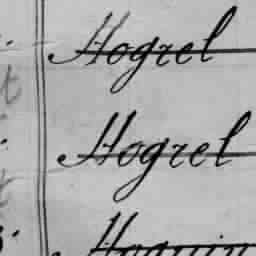 Hogrel
Hogrel